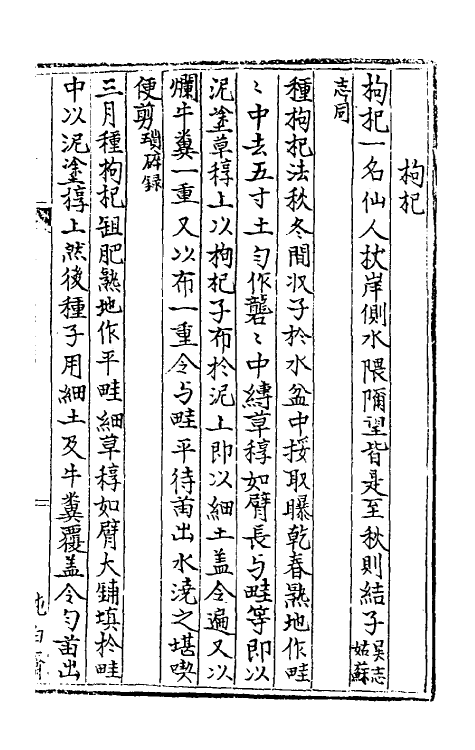 枸杞
枸杞一名仙人杖岸側水隈隬望皆是至秋則結子吳志姑蘇
志同
種枸杞法秋冬間收子於水盆中挼取曝乾春熟地作畦
〻中去五寸土勻作礱〻中縳草稕如臂長与畦等即以
泥塗草稕上以枸杞子布於泥上即以細土盖令遍又以
爛牛糞一重又以布一重令与畦平待苗出水澆之堪喫
便剪瑣碎録
三月種枸杞鉏肥熟地作平畦細草稕如臂大鋪填於畦
中以泥塗稕上然後種子用細土及牛糞覆盖令勻苗出